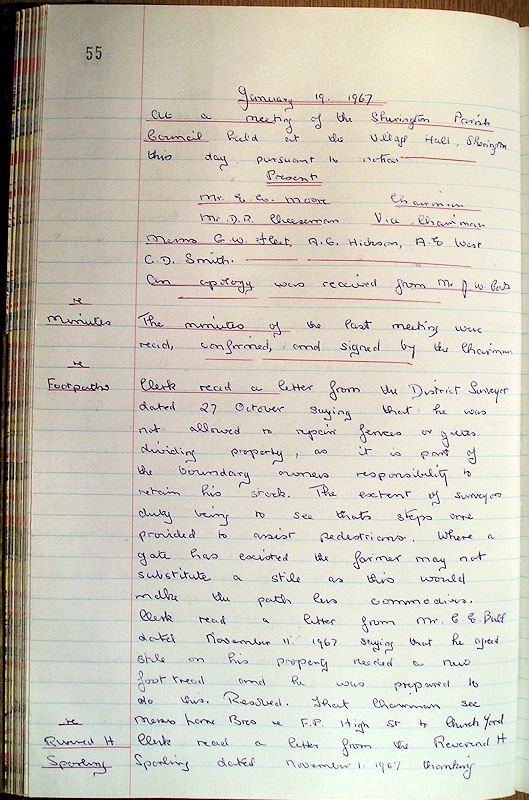 55
January 19. 1967
At a meeting of the Sherington Parish
Council held at the Village Hall, Sherington
this day pursuant to notice
Present
Mr. E. W. Moore Chairman
Mr. D.R. Cheeseman Vice Chairman
Mems G.W. Fleet, A.G. Hickson, A.E West
C.D. Smith.
An apology was received from Mr J. W.
re
Minutes The minutes of the last meeting were
read, confirmed, and signed by the Chairman
re
Footpaths Clerk read a letter from the District Surveyor
dated 27 October saying that he was
not allowed to repair fences or gates
dividing property, as it is part of
the boundary owners responsibility to
retain his stock. The extent of surveyors
duty being to see thats steps are
provided to assist pedestrians. Where a
gate has existed the farmer may not
substitute a stile as this would
make the path less commodius.
Clerk read a letter from Mr. C E. Ball
dated November 11. 1967 saying that he agreed
stile on his property needed a new
foot tread and he was prepared to
do this. Resolved. That Chairman see
re Bros re F.P. High St to Church Yard
Revrend H Clerk read a letter from the Reverend H
Sporling Sporling dated November 1. 1967 thanking